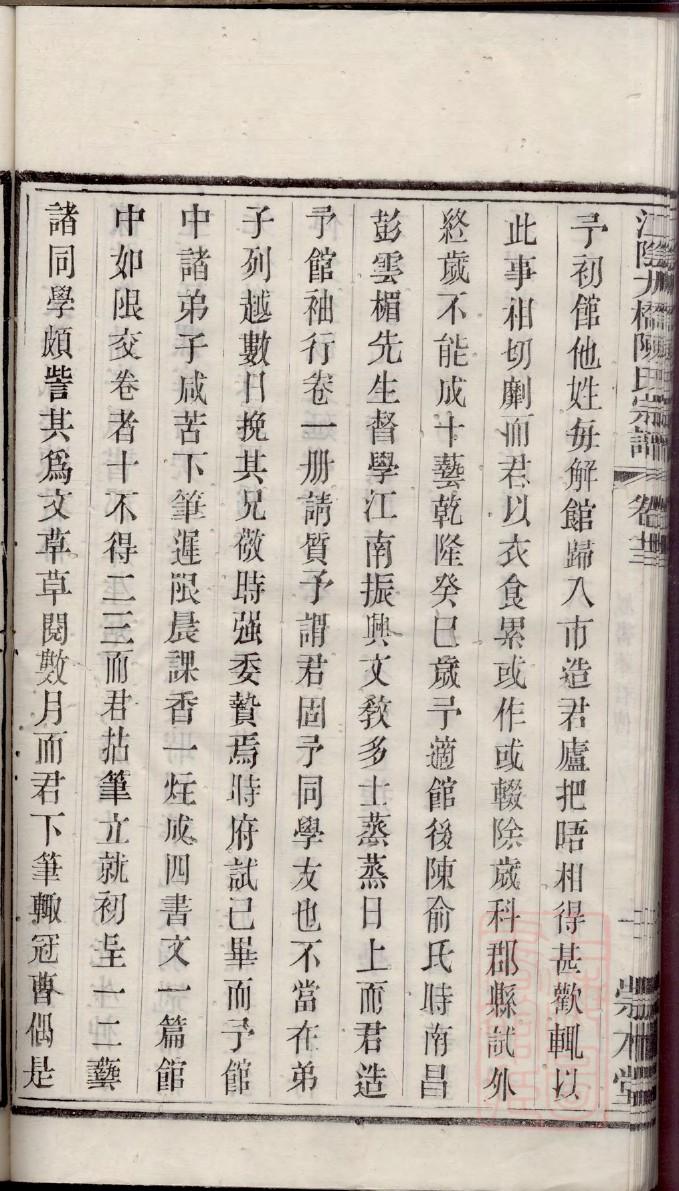 江陰九橋陳氏宗譜 卷廿三 崇本堂
予初館他姓每解館歸入市造君廬把晤相得甚歡輒以
此事相切劘而君以衣食累或作或輟除歲科郡縣試外
終歲不能成十藝乾隆癸巳歲予適館後陳俞氏時南昌
彭雲楣先生督學江南振興文敎多士蒸蒸日上而君造
予館袖行卷一册請質予謂君固予同學友也不當在弟
子列越數日挽其兄敬時强委贄焉時府試已畢而予館
中諸弟子咸苦下筆遲限晨課香一炷成四書文一篇館
中如限交卷者十不得二三而君拈筆立就初呈一二藝
諸同學頗訾其爲文草草閱數月而君下筆輙冠曹偶是